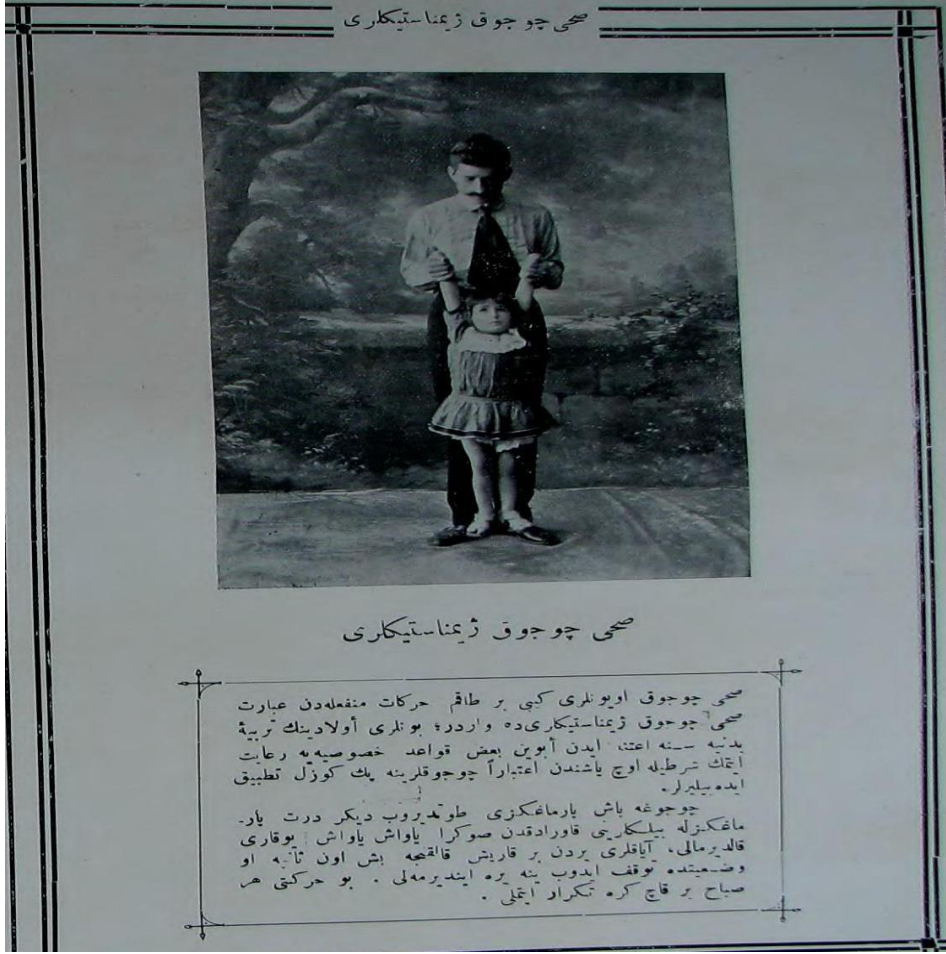 صحی چوجوق ژیمناستیكلری
صحی چوجوق ژیمناستیكلری
صحی چوجوق اویونلری كبی بر طاقم حركات منفعله‌دن عبارت
صحی چوجوق ژیمناستیكلری‌ده واردر؛ بونلری أولادینك تربیهٔ
بدنیه سنه اعتنا ایدن أبوین بعض قواعد خصوصیه‌یه رعایت
ایتمك شرطیله اوچ یاشندن اعتباراً چوجوقلرینه پك كوزل تطبیق
ایده بیلیرلر.
چوجوغه باش پارماغكزی طوتدیروب دیكر درت پار-
ماغكزله بیلكلرینی قاورادقدن صوكرا یاواش یاواش یوقاری
قالدیرمالی، آیاقلری یردن بر قاریش قالقنجه بش اون ثانیه او
وضعیتده توقف ایدوب ینه یره ایندیرمه‌لی. بو حركتی هر
صباح بر قاچ كره تكرار ایتملی.